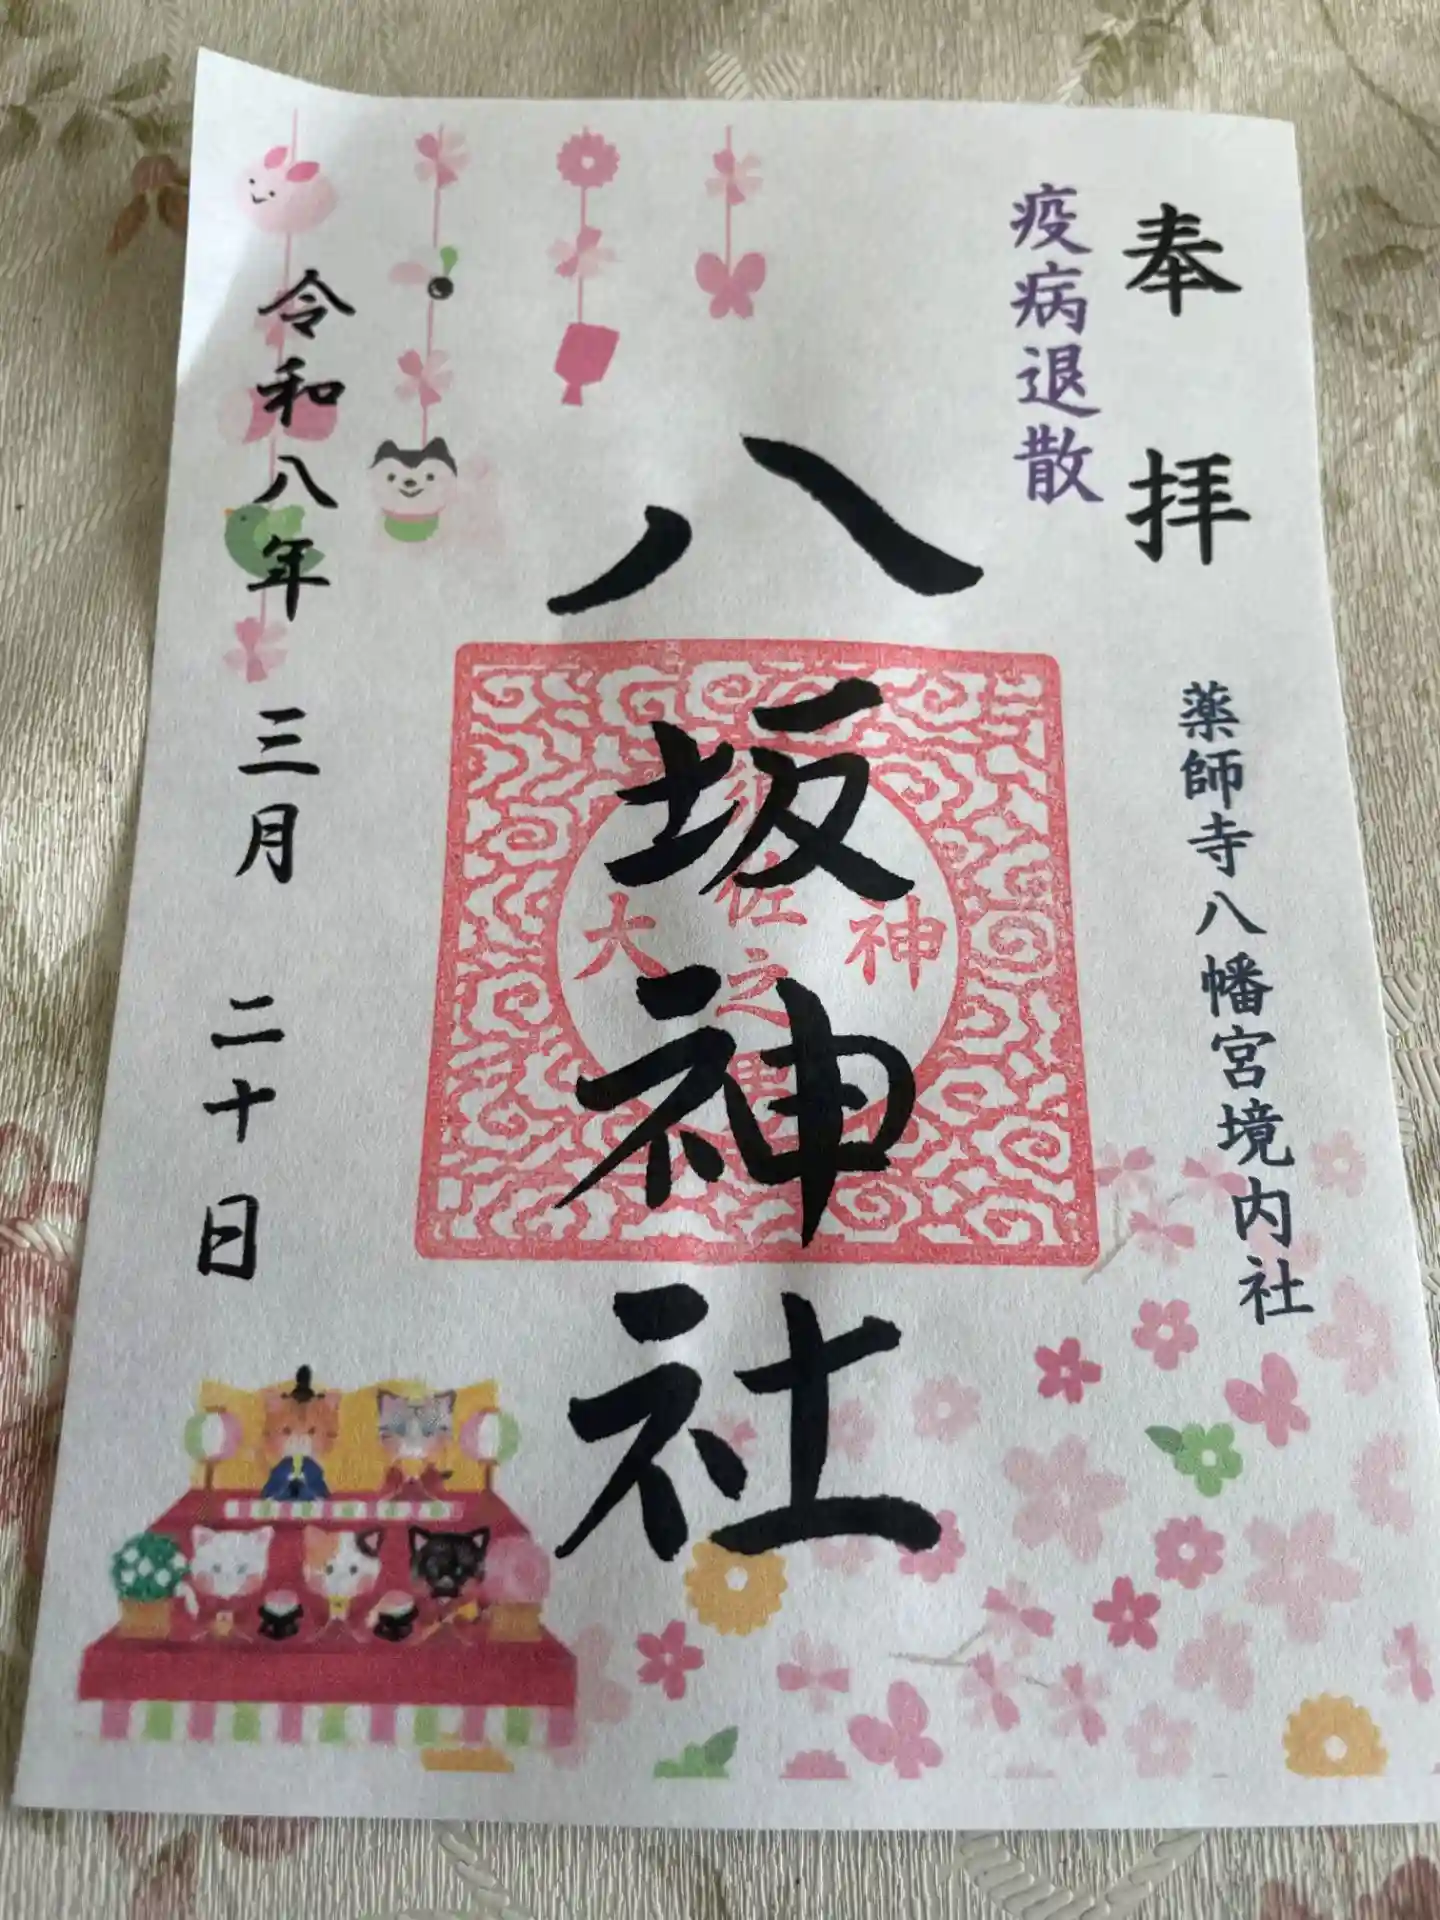 奉拝
疫病退散
薬師寺八幡宮境内社
八坂神社
大
佐之
神
令和八年
三月
二十日